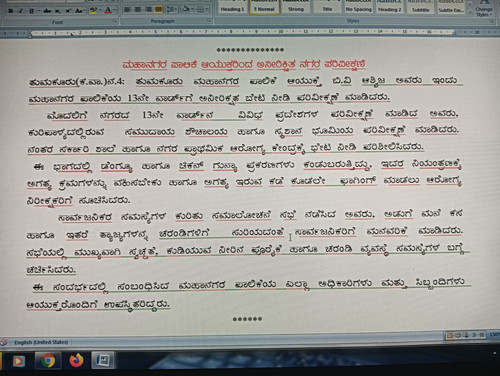 Font
Paragraph
Styles
Heading 1
¶ Normal
Strong
Title
No Spacing
Heading 2
Subtitle
Subtle Em...
Change
Styles
***************
ಮಹಾನಗರ ಪಾಲಿಕೆ ಆಯುಕ್ತರಿಂದ ಅನೀರಿಕ್ಷಿತ ನಗರ ಪರಿವೀಕ್ಷಣೆ
ತುಮಕೂರು(ಕ.ವಾ.)ನ.4: ತುಮಕೂರು ಮಹಾನಗರ ಪಾಲಿಕೆ ಆಯುಕ್ತೆ ಬಿ.ವಿ ಆಶ್ವಿಜ ಅವರು ಇಂದು
ಮಹಾನಗರ ಪಾಲಿಕೆಯ 13ನೇ ವಾರ್ಡ್‌ಗೆ ಅನೀರಿಕ್ಷಿತ ಬೇಟಿ ನೀಡಿ ಪರಿವೀಕ್ಷಣೆ ಮಾಡಿದರು.
ಮೊದಲಿಗೆ ನಗರದ 13ನೇ ವಾರ್ಡ್‌ನ ವಿವಿಧ ಪ್ರದೇಶಗಳ ಪರಿವೀಕ್ಷಣೆ ಮಾಡಿದ ಅವರು,
ಕುರಿಪಾಳ್ಯದಲ್ಲಿರುವ ಸಮುದಾಯ ಶೌಚಾಲಯ ಹಾಗೂ ಸ್ಮಶಾನ ಭೂಮಿಯ ಪರಿವೀಕ್ಷಣೆ ಮಾಡಿದರು.
ನಂತರ ಸರ್ಕಾರಿ ಶಾಲೆ ಹಾಗೂ ನಗರ ಪ್ರಾಥಮಿಕ ಆರೋಗ್ಯ ಕೇಂದ್ರಕ್ಕೆ ಭೇಟಿ ನೀಡಿ ಪರಿಶೀಲಿಸಿದರು.
ಈ ಭಾಗದಲ್ಲಿ ಡೆಂಗ್ಯೂ ಹಾಗೂ ಚಿಕನ್ ಗುನ್ಯಾ ಪ್ರಕರಣಗಳು ಕಂಡುಬರುತ್ತಿದ್ದು, ಇದರ ನಿಯಂತ್ರಣಕ್ಕೆ
ಅಗತ್ಯ ಕ್ರಮಗಳನ್ನು ವಹಿಸಬೇಕು ಹಾಗೂ ಅಗತ್ಯ ಇರುವ ಕಡೆ ಕೂಡಲೇ ಫಾಗಿಂಗ್ ಮಾಡಲು ಆರೋಗ್ಯ
ನಿರೀಕ್ಷಕರಿಗೆ ಸೂಚಿಸಿದರು.
ಸಾರ್ವಜನಿಕರ ಸಮಸ್ಯೆಗಳ ಕುರಿತು ಸಮಾಲೋಚನೆ ಸಭೆ ನಡೆಸಿದ ಅವರು, ಅಡುಗೆ ಮನೆ ಕಸ
ಹಾಗೂ ಇತರೆ ತ್ಯಾಜ್ಯಗಳನ್ನ ಚರಂಡಿಗಳಿಗೆ ಸುರಿಯದಂತೆ ಸಾರ್ವಜನಿಕರಿಗೆ ಮನವರಿಕೆ ಮಾಡಿದರು.
ಸಭೆಯಲ್ಲಿ ಮುಖ್ಯವಾಗಿ ಸ್ವಚ್ಛತೆ, ಕುಡಿಯುವ ನೀರಿನ ಪೂರೈಕೆ ಹಾಗೂ ಚರಂಡಿ ವ್ಯವಸ್ಥೆ ಸಮಸ್ಯೆಗಳ ಬಗ್ಗೆ
ಚರ್ಚಿಸಿದರು.
ಈ ಸಂದರ್ಭದಲ್ಲಿ ಸಂಬಂಧಿಸಿದ ಮಹಾನಗರ ಪಾಲಿಕೆಯ ಎಲ್ಲಾ ಅಧಿಕಾರಿಗಳು ಮತ್ತು ಸಿಬ್ಬಂದಿಗಳು
ಆಯುಕ್ತರೊಂದಿಗೆ ಉಪಸ್ಥಿತರಿದ್ದರು.
******
English (United States)